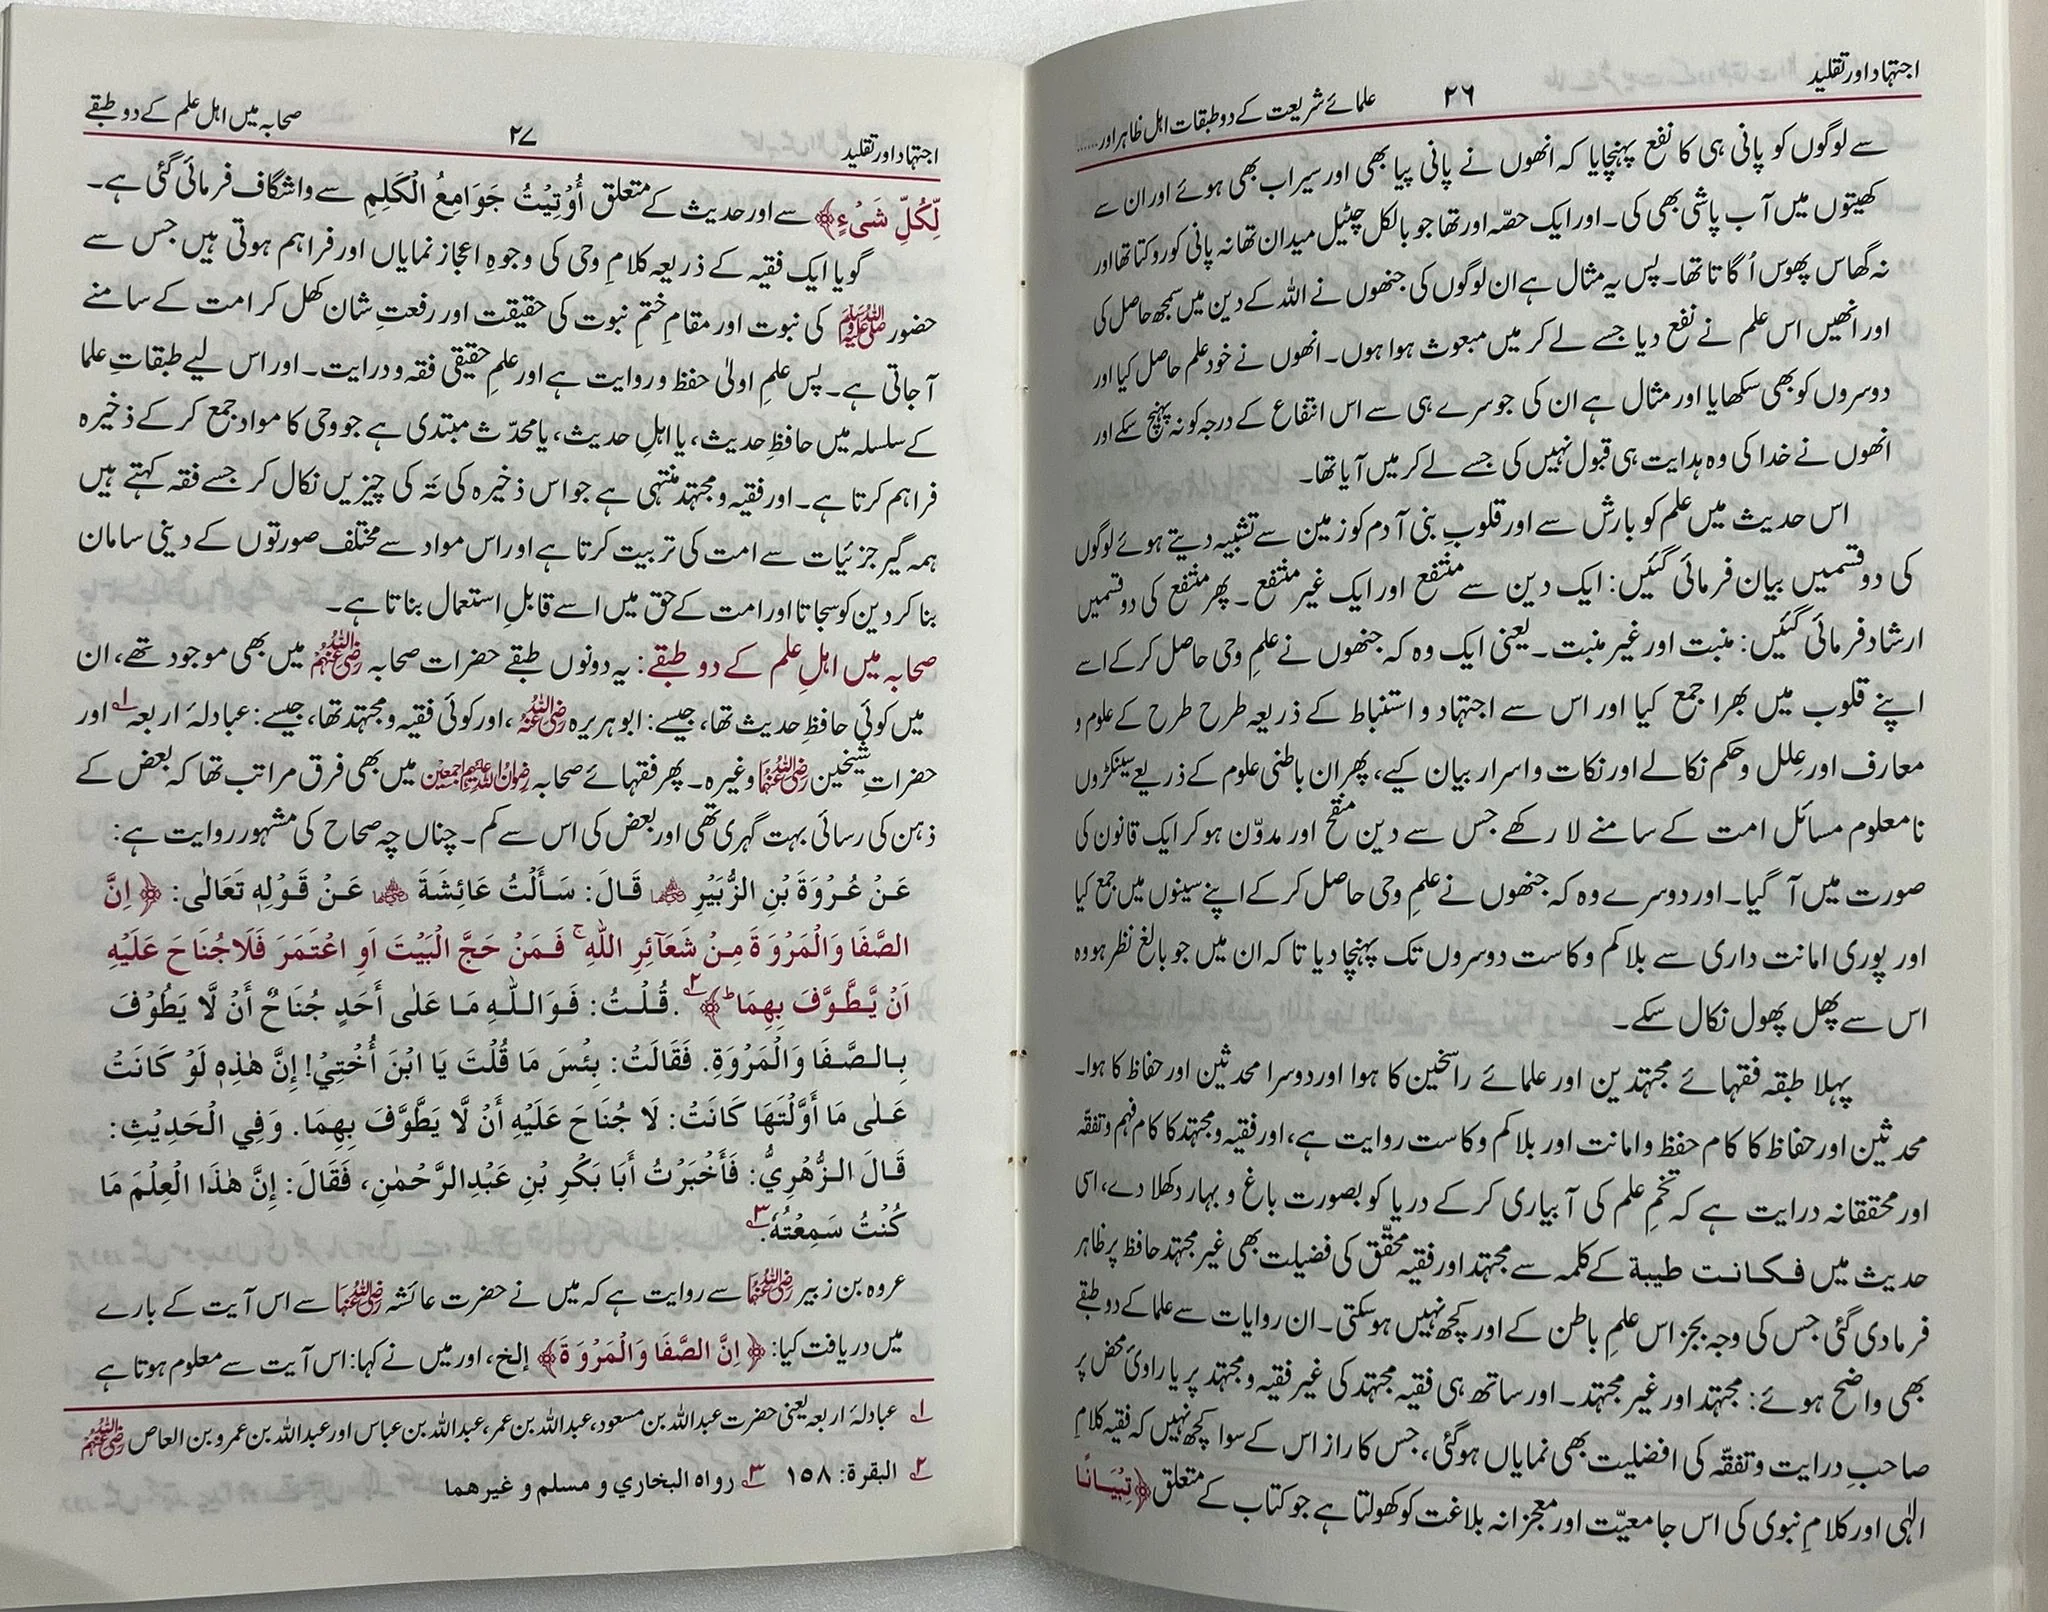 اجتہاد اور تقلید ۲۶ علمائے شریعت کے دو طبقات اہل ظاہر اور......
سے لوگوں کو پانی ہی کا نفع پہنچایا کہ انھوں نے پانی پیا بھی اور سیراب بھی ہوئے اور ان سے
کھیتوں میں آب پاشی بھی کی۔ اور ایک حصّہ اور تھا جو بالکل چٹیل میدان تھا نہ پانی کو روکتا تھا اور
نہ گھاس پھوس اُگاتا تھا۔ پس یہ مثال ہے ان لوگوں کی جنھوں نے اللہ کے دین میں سمجھ حاصل کی
اور انھیں اس علم نے نفع دیا جسے لے کر میں مبعوث ہوا ہوں۔ انھوں نے خود علم حاصل کیا اور
دوسروں کو بھی سکھایا اور مثال ہے ان کی جو سرے ہی سے اس انتفاع کے درجہ کو نہ پہنچ سکے اور
انھوں نے خدا کی وہ ہدایت ہی قبول نہیں کی جسے لے کر میں آیا تھا۔
اس حدیث میں علم کو بارش سے اور قلوبِ بنی آدم کو زمین سے تشبیہ دیتے ہوئے لوگوں
کی دو قسمیں بیان فرمائی گئیں: ایک دین سے منتفع اور ایک غیر منتفع۔ پھر منتفع کی دو قسمیں
ارشاد فرمائی گئیں: منبت اور غیر منبت۔ یعنی ایک وہ کہ جنھوں نے علمِ وحی حاصل کرکے اسے
اپنے قلوب میں بھرا جمع کیا اور اس سے اجتہاد و استنباط کے ذریعہ طرح طرح کے علوم و
معارف اور عِلل و حکم نکالے اور نکات و اسرار بیان کیے، پھر ان باطنی علوم کے ذریعے سینکڑوں
نامعلوم مسائل امت کے سامنے لا رکھے جس سے دین منقح اور مدوّن ہو کر ایک قانون کی
صورت میں آ گیا۔ اور دوسرے وہ کہ جنھوں نے علمِ وحی حاصل کرکے اپنے سینوں میں جمع کیا
اور پوری امانت داری سے بلا کم و کاست دوسروں تک پہنچا دیا تا کہ ان میں جو بالغ نظر ہو وہ
اس سے پھل پھول نکال سکے۔
پہلا طبقہ فقہائے مجتہدین اور علمائے راسخین کا ہوا اور دوسرا محدثین اور حفاظ کا ہوا۔
محدثین اور حفاظ کا کام حفظ و امانت اور بلا کم و کاست روایت ہے، اور فقیہ و مجتہد کا کام فہم و تفقّہ
اور محققانہ درایت ہے کہ تخمِ علم کی آبیاری کرکے دریا کو بصورت باغ و بہار دکھلا دے، اسی
حدیث میں فکانت طیبة کے کلمہ سے مجتہد اور فقیہ محقّق کی فضیلت بھی غیر مجتہد حافظ پر ظاہر
فرما دی گئی جس کی وجہ بجز اس علمِ باطن کے اور کچھ نہیں ہو سکتی۔ ان روایات سے علما کے دو طبقے
بھی واضح ہوئے: مجتہد اور غیر مجتہد۔ اور ساتھ ہی فقیہ مجتہد کی غیر فقیہ و مجتہد پر یا راویٔ محض پر
صاحبِ درایت و تفقّہ کی افضلیت بھی نمایاں ہوگئی، جس کا راز اس کے سوا کچھ نہیں کہ فقیہ کلامِ
الٰہی اور کلامِ نبوی کی اس جامعیّت اور معجزانہ بلاغت کو کھولتا ہے جو کتاب کے متعلق ﴿تِبْيَانًا
اجتہاد اور تقلید ۲۷ صحابہ میں اہل علم کے دو طبقے
لِّكُلِّ شَیْءٍ﴾ سے اور حدیث کے متعلق أُوْتِيْتُ جَوَامِعُ الْكَلِمِ سے واشگاف فرمائی گئی ہے۔
گویا ایک فقیہ کے ذریعہ کلامِ وحی کی وجوہِ اعجاز نمایاں اور فراہم ہوتی ہیں جس سے
حضور ﷺ کی نبوت اور مقامِ ختمِ نبوت کی حقیقت اور رفعتِ شان کھل کر امت کے سامنے
آ جاتی ہے۔ پس علمِ اولیٰ حفظ و روایت ہے اور علمِ حقیقی فقہ و درایت۔ اور اس لیے طبقاتِ علما
کے سلسلہ میں حافظِ حدیث، یا اہلِ حدیث، یا محدّث مبتدی ہے جو وحی کا مواد جمع کرکے ذخیرہ
فراہم کرتا ہے۔ اور فقیہ و مجتہد منتہی ہے جو اس ذخیرہ کی تہ کی چیزیں نکال کر جسے فقہ کہتے ہیں
ہمہ گیر جزئیات سے امت کی تربیت کرتا ہے اور اس مواد سے مختلف صورتوں کے دینی سامان
بنا کر دین کو سجاتا اور امت کے حق میں اسے قابلِ استعمال بناتا ہے۔
صحابہ میں اہلِ علم کے دو طبقے: یہ دونوں طبقے حضرات صحابہ رضی اللہ عنہم میں بھی موجود تھے، ان
میں کوئی حافظِ حدیث تھا، جیسے: ابوہریرہ رضی اللہ عنہ، اور کوئی فقیہ و مجتہد تھا، جیسے: عبادلۂ اربعہ ۱ اور
حضراتِ شیخین رضی اللہ عنہما وغیرہ۔ پھر فقہائے صحابہ رضوان اللہ علیہم اجمعین میں بھی فرق مراتب تھا کہ بعض کے
ذہن کی رسائی بہت گہری تھی اور بعض کی اس سے کم۔ چناں چہ صحاح کی مشہور روایت ہے:
عَنْ عُرْوَةَ بْنِ الزُّبَيْرِ رضی اللہ عنہما قَالَ: سَأَلْتُ عَائِشَةَ رضی اللہ عنہا عَنْ قَوْلِهٖ تَعَالٰى: ﴿اِنَّ
الصَّفَا وَالْمَرْوَةَ مِنْ شَعَآئِرِ اللّٰهِ ۚ فَمَنْ حَجَّ الْبَيْتَ اَوِ اعْتَمَرَ فَلَا جُنَاحَ عَلَيْهِ
اَنْ يَّطَّوَّفَ بِهِمَا ؕ﴾ ۲. قُلْتُ: فَوَاللّٰهِ مَا عَلٰى أَحَدٍ جُنَاحٌ أَنْ لَّا يَطُوْفَ
بِالصَّفَا وَالْمَرْوَةِ. فَقَالَتْ: بِئْسَ مَا قُلْتَ يَا ابْنَ أُخْتِيْ! إِنَّ هٰذِهٖ لَوْ كَانَتْ
عَلٰى مَا أَوَّلْتَهَا كَانَتْ: لَا جُنَاحَ عَلَيْهِ أَنْ لَّا يَطَّوَّفَ بِهِمَا. وَفِي الْحَدِيْثِ:
قَالَ الزُّهْرِيُّ: فَأَخْبَرْتُ أَبَا بَكْرِ بْنِ عَبْدِالرَّحْمٰنِ، فَقَالَ: إِنَّ هٰذَا الْعِلْمَ مَا
كُنْتُ سَمِعْتُهٗ. ۳
عروہ بن زبیر رضی اللہ عنہما سے روایت ہے کہ میں نے حضرت عائشہ رضی اللہ عنہا سے اس آیت کے بارے
میں دریافت کیا: ﴿اِنَّ الصَّفَا وَالْمَرْوَةَ﴾ إلخ، اور میں نے کہا: اس آیت سے معلوم ہوتا ہے
۱ عبادلۂ اربعہ یعنی حضرت عبداللہ بن مسعود، عبداللہ بن عمر، عبداللہ بن عباس اور عبداللہ بن عمرو بن العاص رضی اللہ عنہم
۲ البقرة: ۱۵۸ ۳ رواه البخاري و مسلم و غيرهما